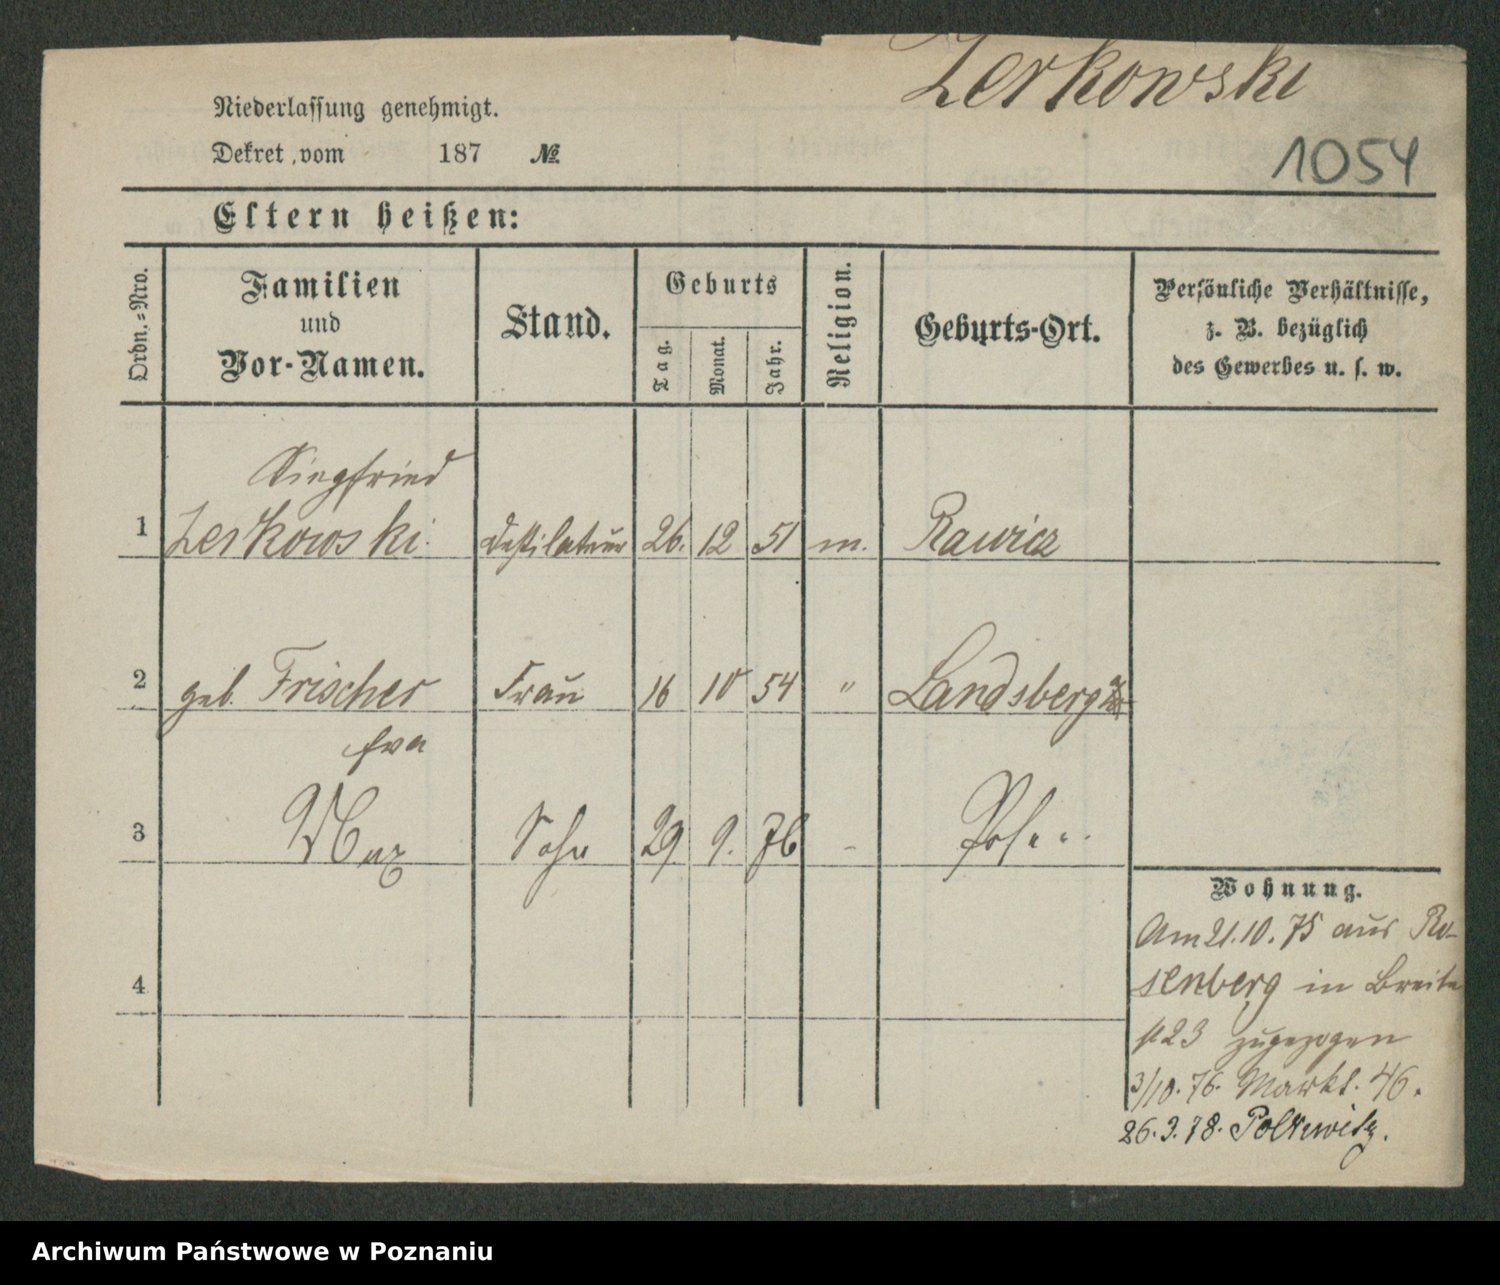 Zerkowski
Niederlassung genehmigt.
Dekret, vom 187 №
1054
Eltern heißen:
Ordn.=Nro.
Familien
und
Vor-Namen.
Stand.
Geburts
Tag.
Monat.
Jahr.
Religion.
Geburts-Ort.
Persönliche Verhältnisse,
z. B. bezüglich
des Gewerbes u. s. w.
Siegfried
1 Zerkowski. Destilateur 26. 12 51 m. Rawicz
2 geb. Frischer Frau 16 10 54 " Landsberg
3 Max Sohn 29. 9. 76 - Posen
4
Wohnung.
Am 21.10.75 aus Ro-
senberg in Breite
st 23 zugezogen
3/10.76. Markt. 46.
26.3.78. Polkwitz.
Archiwum Państwowe w Poznaniu